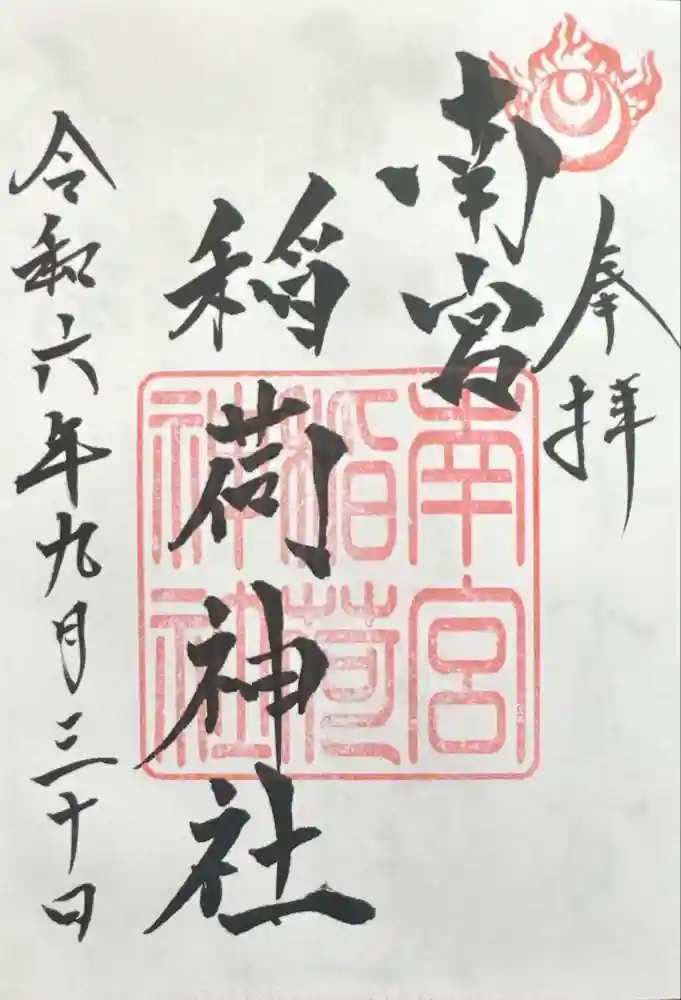 奉拝
南宮
稲荷神社
南宮
稲荷
神社
令和六年九月三十日